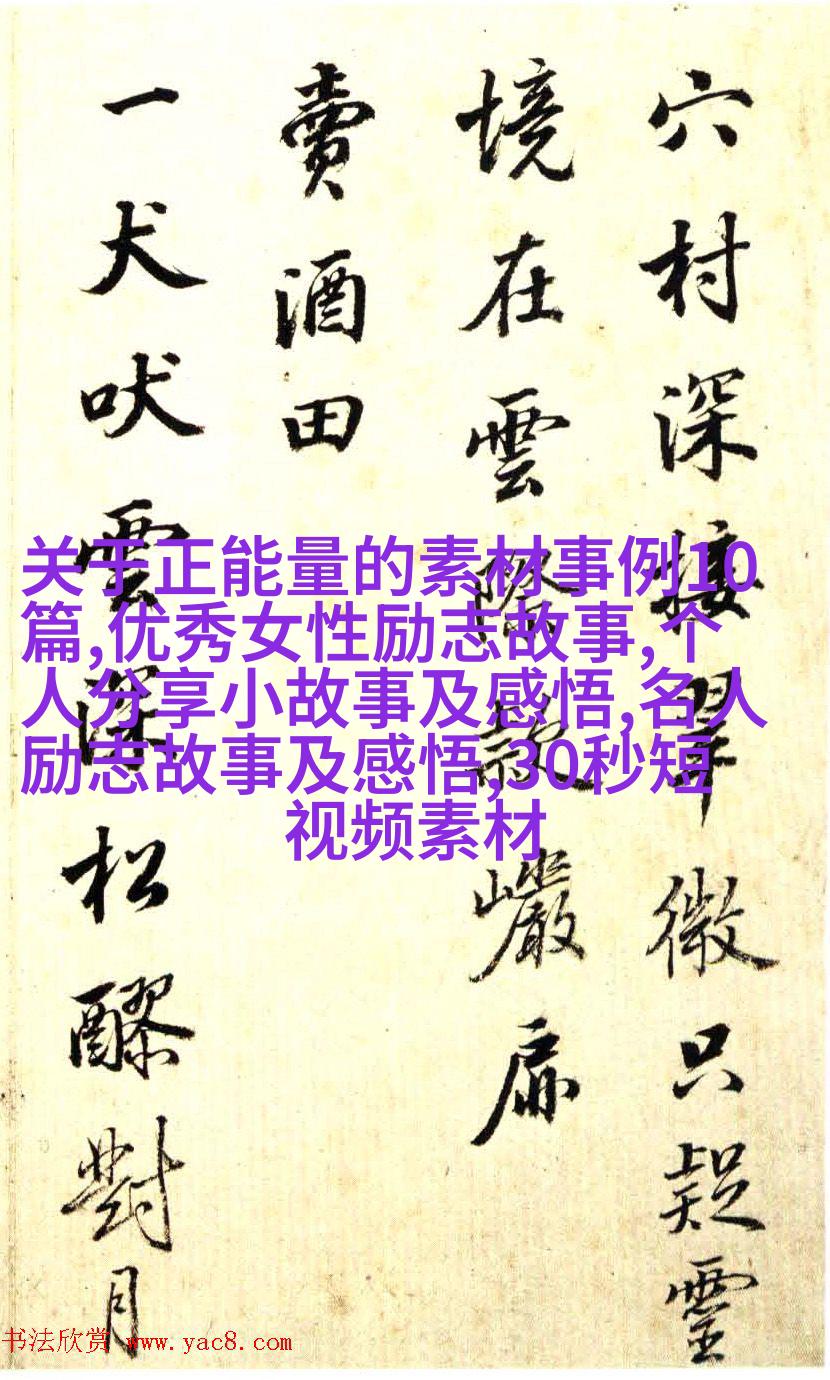 穴村深接翠微只疑靈
境在雲際設巖扉
賣酒田
一犬吠雲深松醪對月
关于正能量的素材事例10
篇,优秀女性励志故事,个
人分享小故事及感悟,名人
励志故事及感悟,30秒短
视频素材
书法欣赏 www.yac8.com